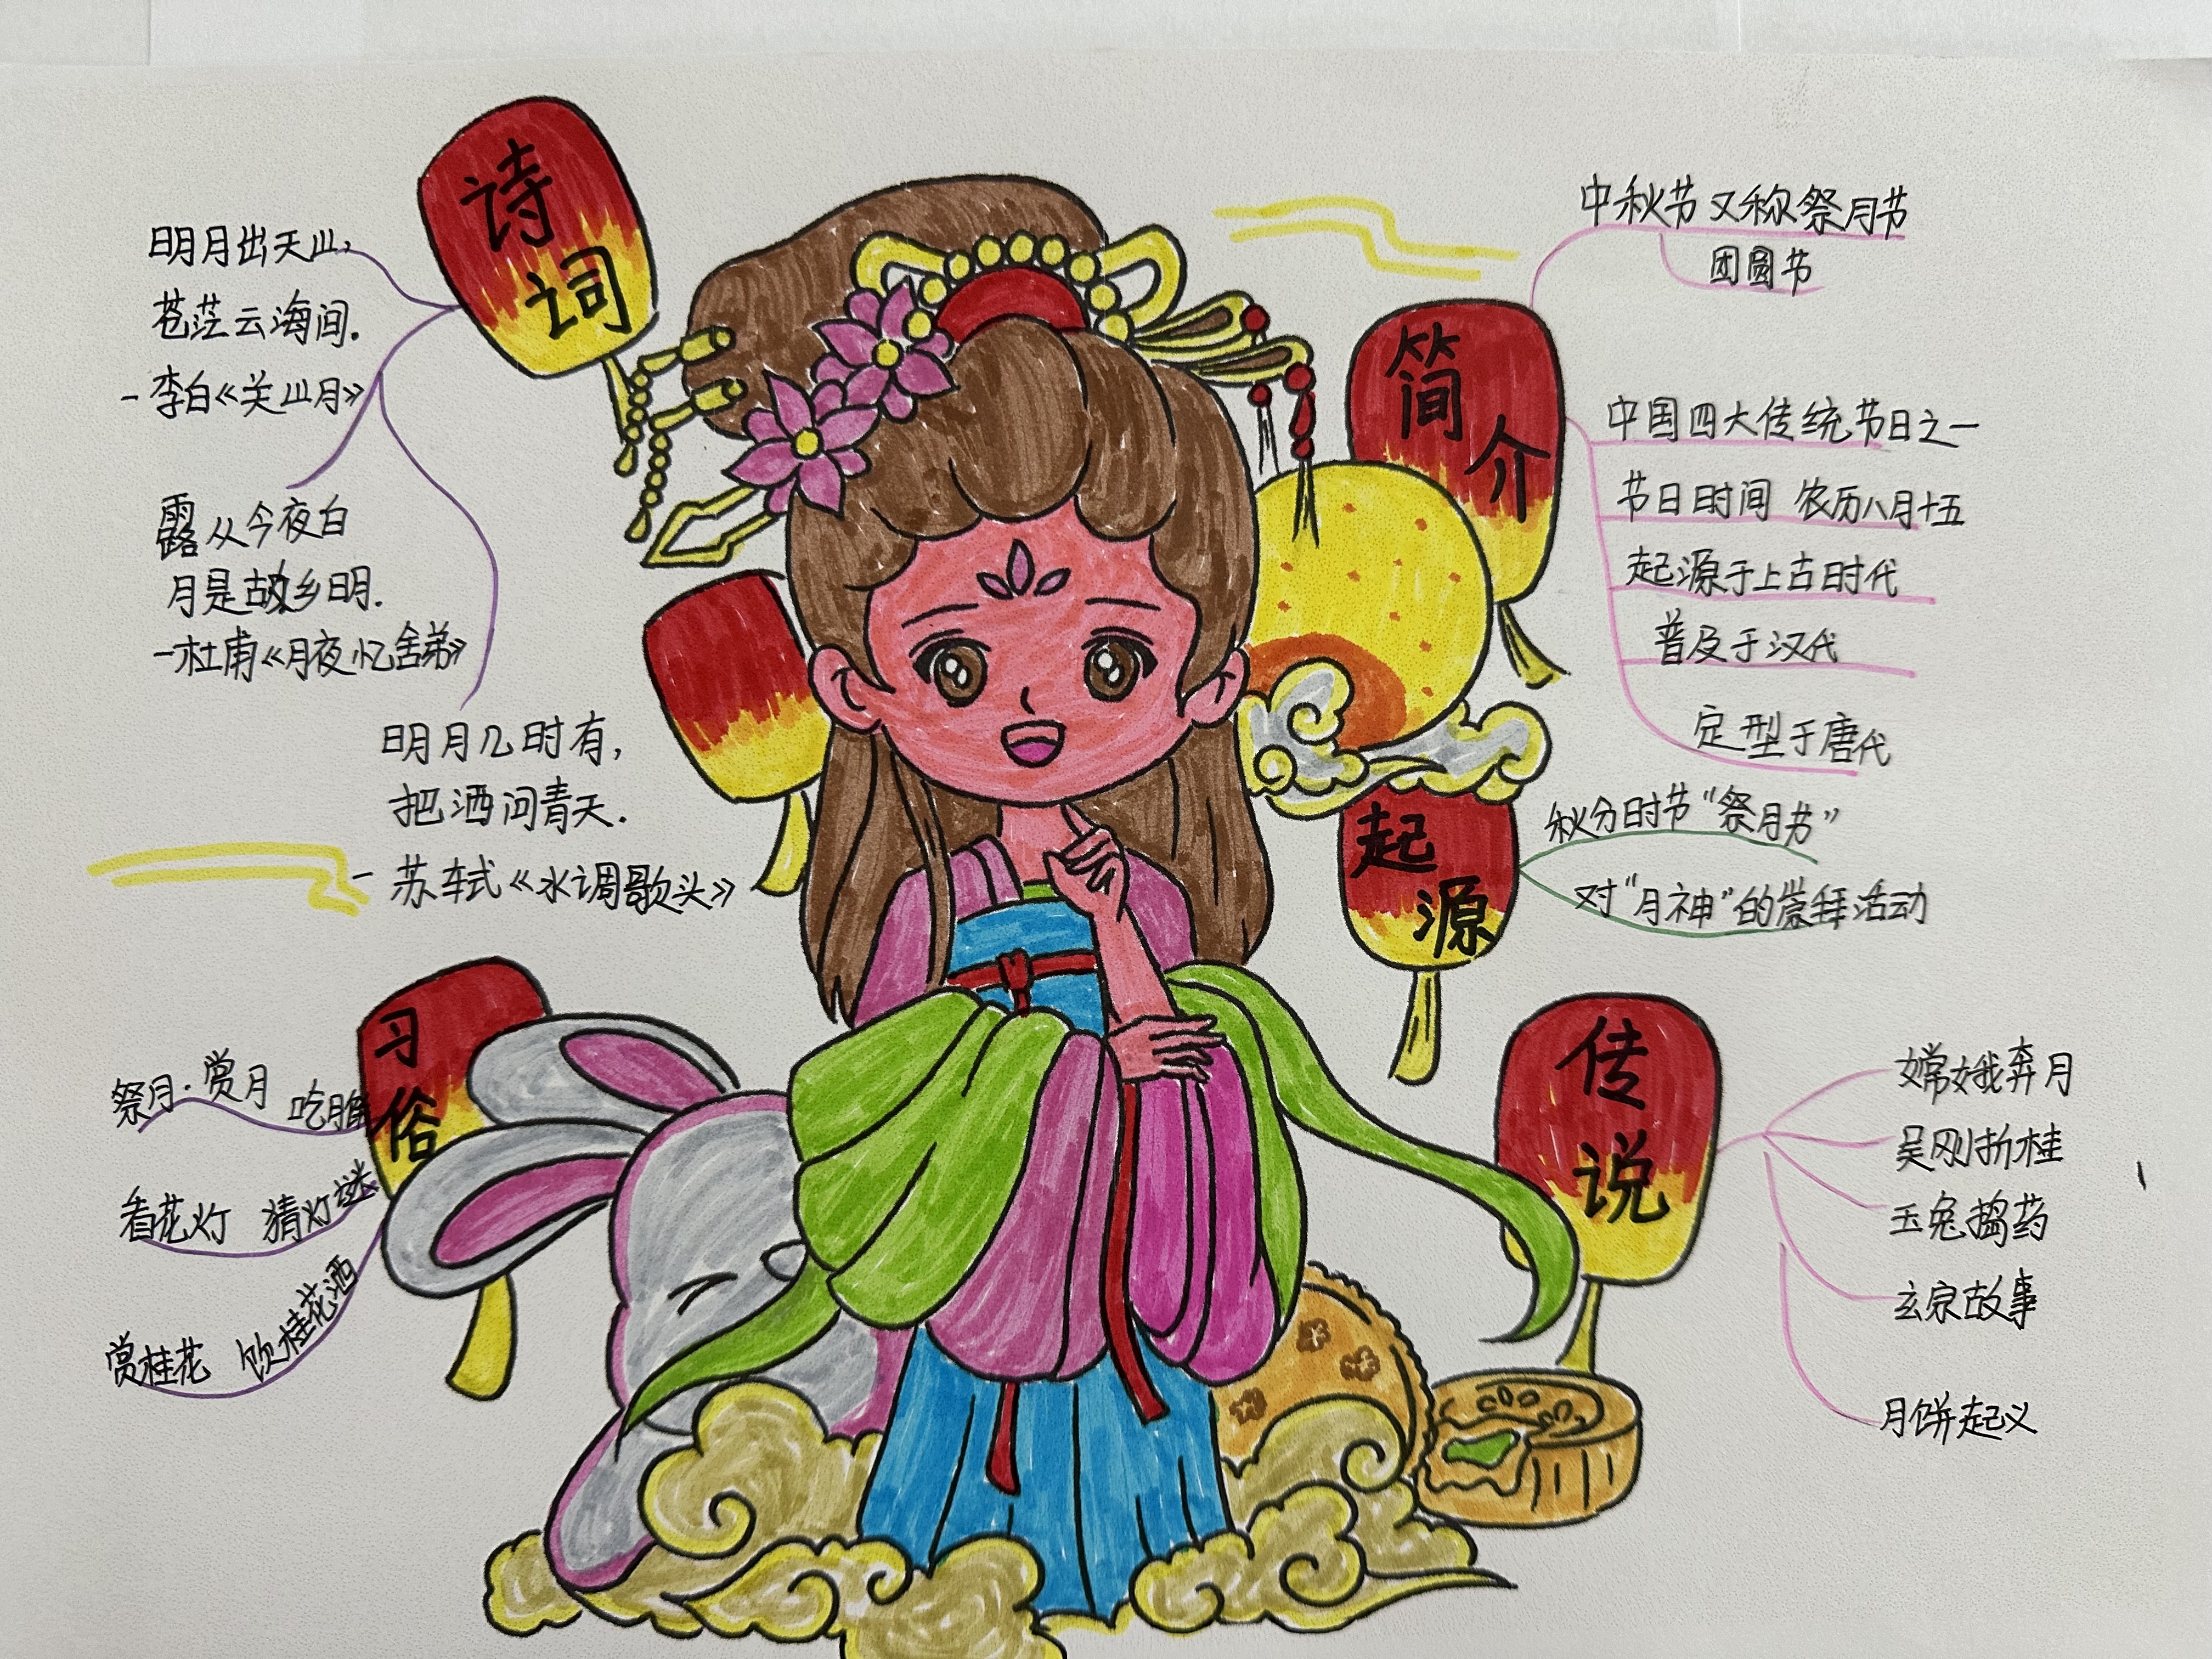 诗词
明月出天山,
苍茫云海间.
-李白《关山月》
露从今夜白
月是故乡明.
-杜甫《月夜忆舍弟》
明月几时有,
把酒问青天.
-苏轼《水调歌头》
习俗
祭月·赏月 吃月饼
看花灯 猜灯谜
赏桂花 饮桂花酒
简介
中秋节又称祭月节
团圆节
中国四大传统节日之一
节日时间 农历八月十五
起源于上古时代
普及于汉代
定型于唐代
起源
秋分时节"祭月节"
对"月神"的崇拜活动
传说
嫦娥奔月
吴刚折桂
玉兔捣药
玄宗故事
月饼起义